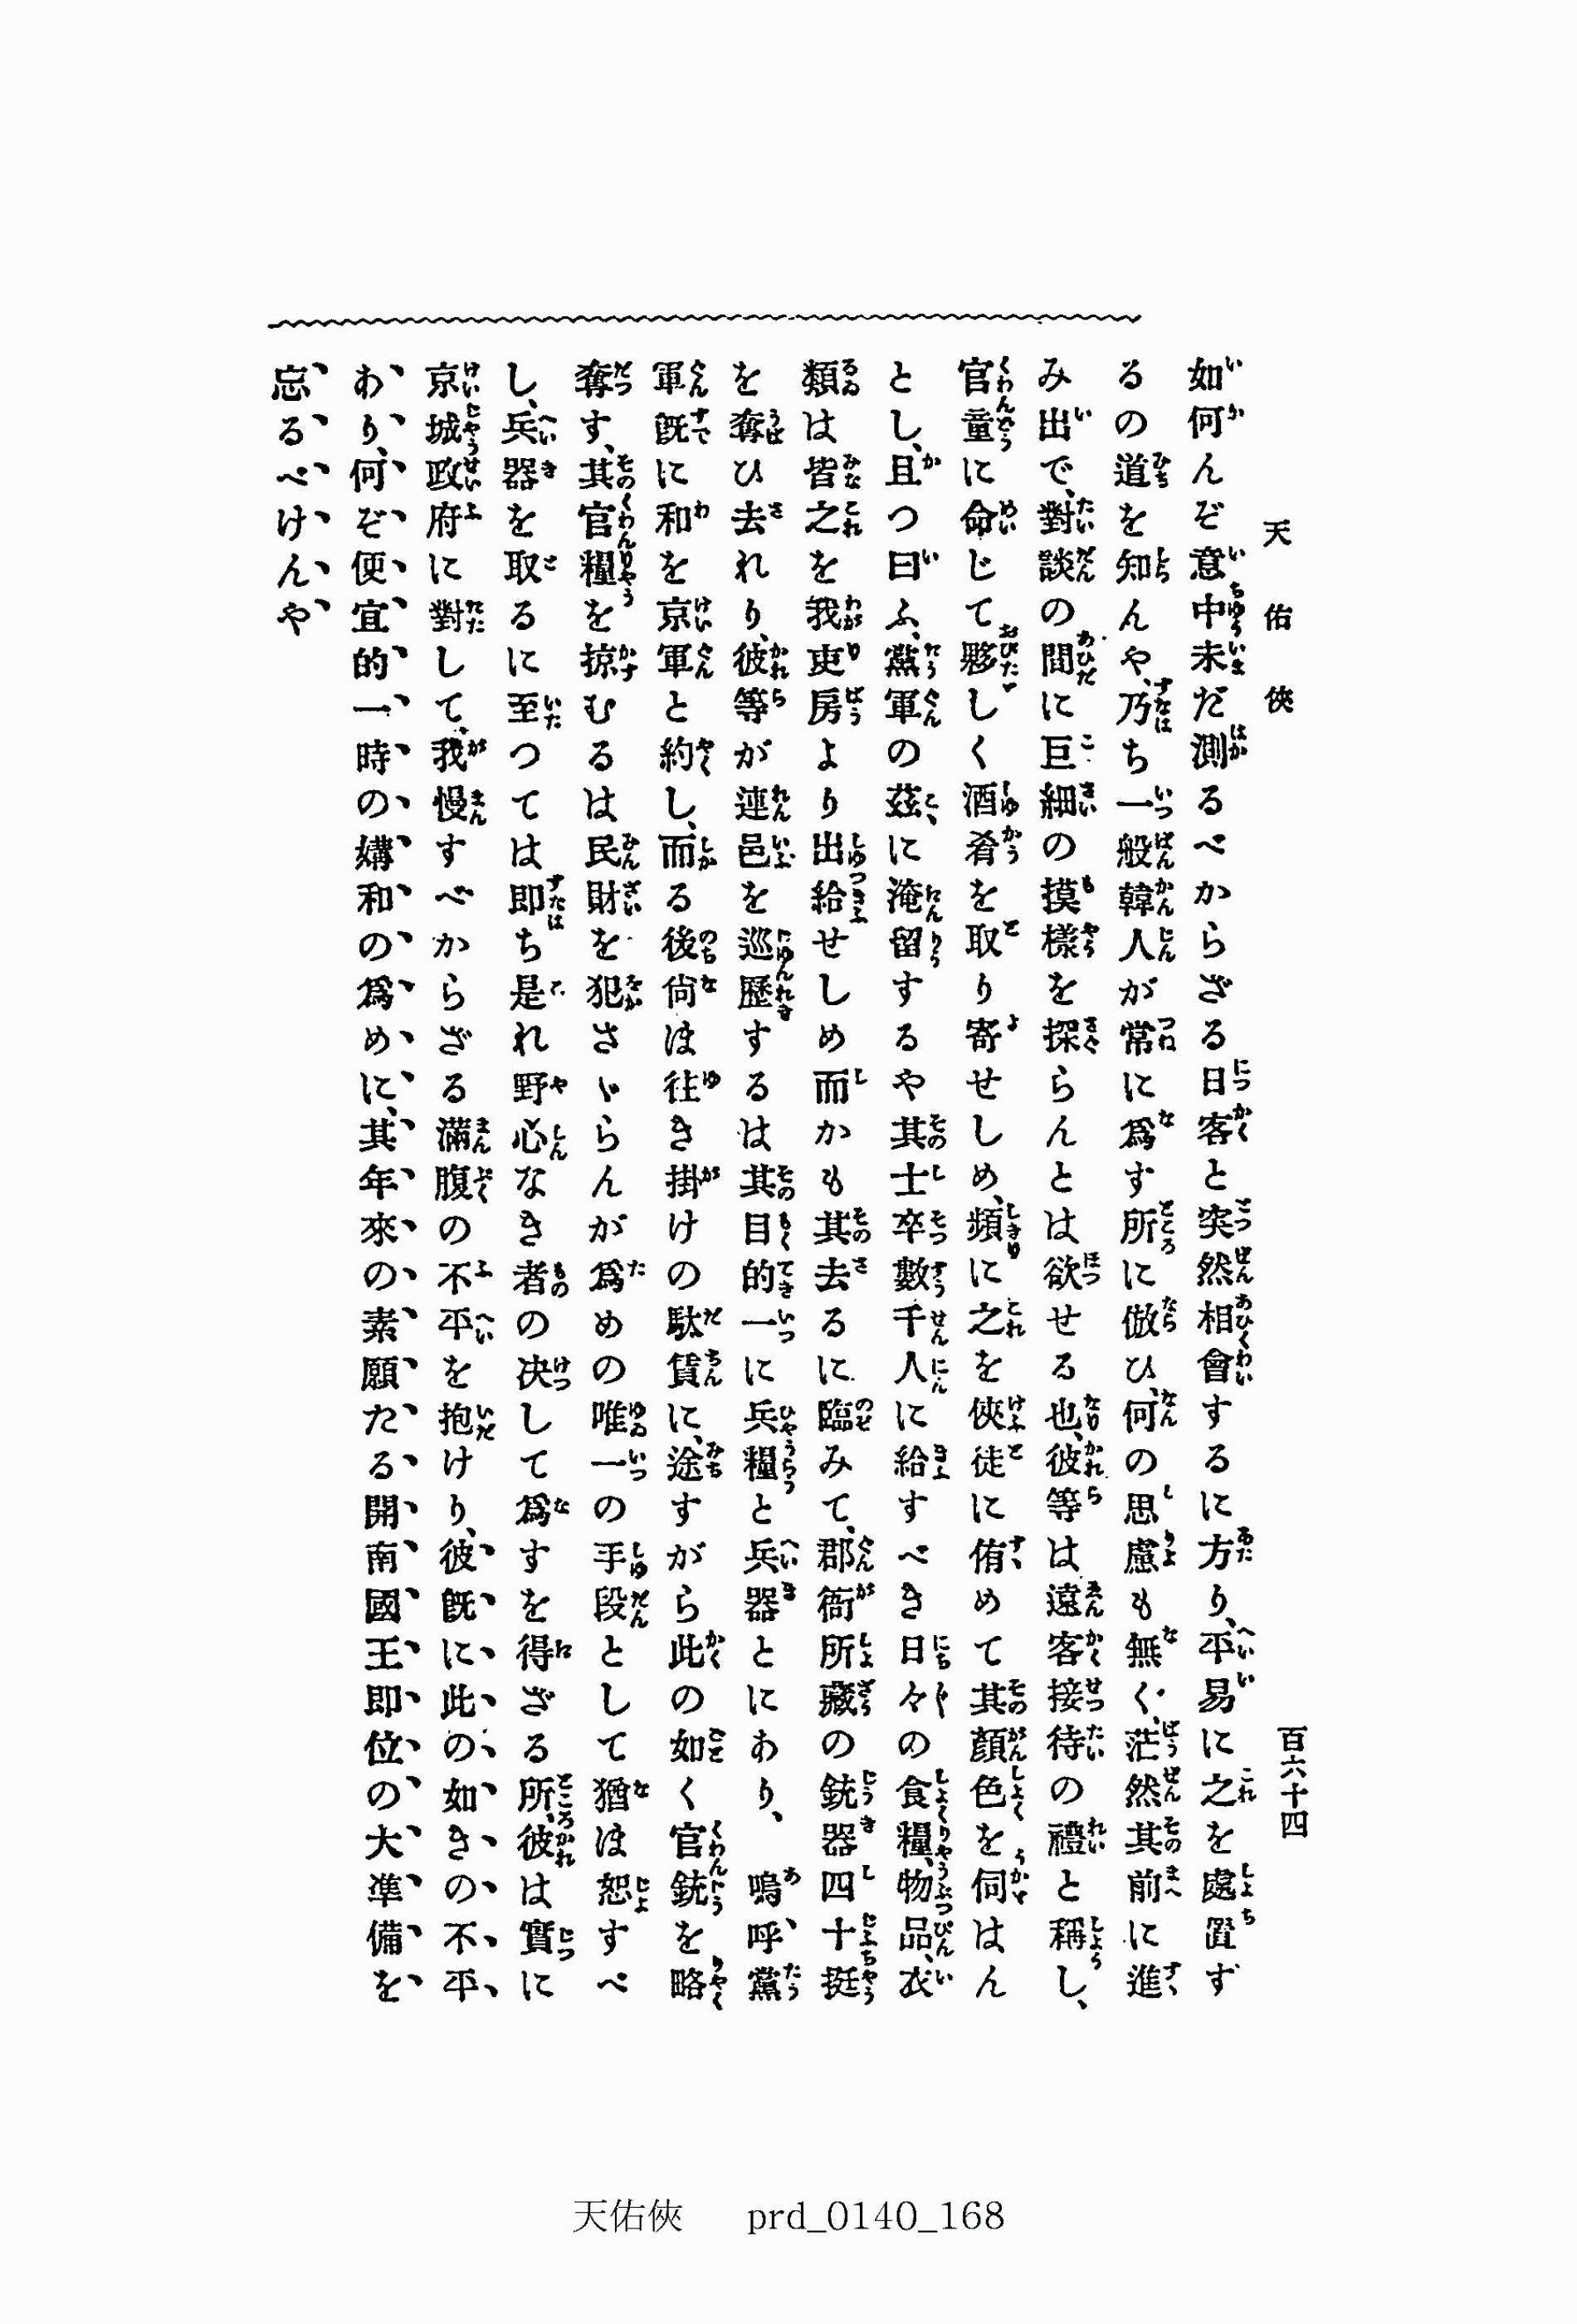 天佑俠
百六十四
如何んぞ意中未だ測るべからざる日客と突然相會するに方り、平易に之を處置ず
るの道を知んや、乃ち一般韓人が常に爲す所に倣ひ、何の思慮も無く、茫然其前に進
み出で、對談の間に巨細の摸樣を探らんとは欲せる也、彼等は遠客接待の禮と稱し、
官童に命じて夥しく酒肴を取り寄せしめ、頻に之を俠徒に侑めて其顏色を伺はん
とし、且つ曰ふ、黨軍の茲に淹留するや其士卒數千人に給すべき日々の食糧、物品、衣
類は皆之を我吏房より出給せしめ而かも其去るに臨みて、郡衙所藏の銃器四十挺
を奪ひ去れり、彼等が連邑を巡歷するは其目的一に兵糧と兵器とにあり、嗚呼、黨
軍旣に和を京軍と約し、而る後尙ほ往き掛けの駄賃に、途すがら此の如く官銃を略
奪す、其官糧を掠むるは民財を犯さゞらんが爲めの唯一の手段として猶ほ恕すべ
し、兵器を取るに至つては即ち是れ野心なき者の决して爲すを得ざる所、彼は實に
京城政府に對して、我慢すべからざる滿腹の不平を抱けり、彼旣に此の如きの不平
わり、何ぞ便宜的一時の媾和の爲めに、其年來の素願たる開南國王即位の大準備を
忘るべけんや
天佑俠　prd_0140_168